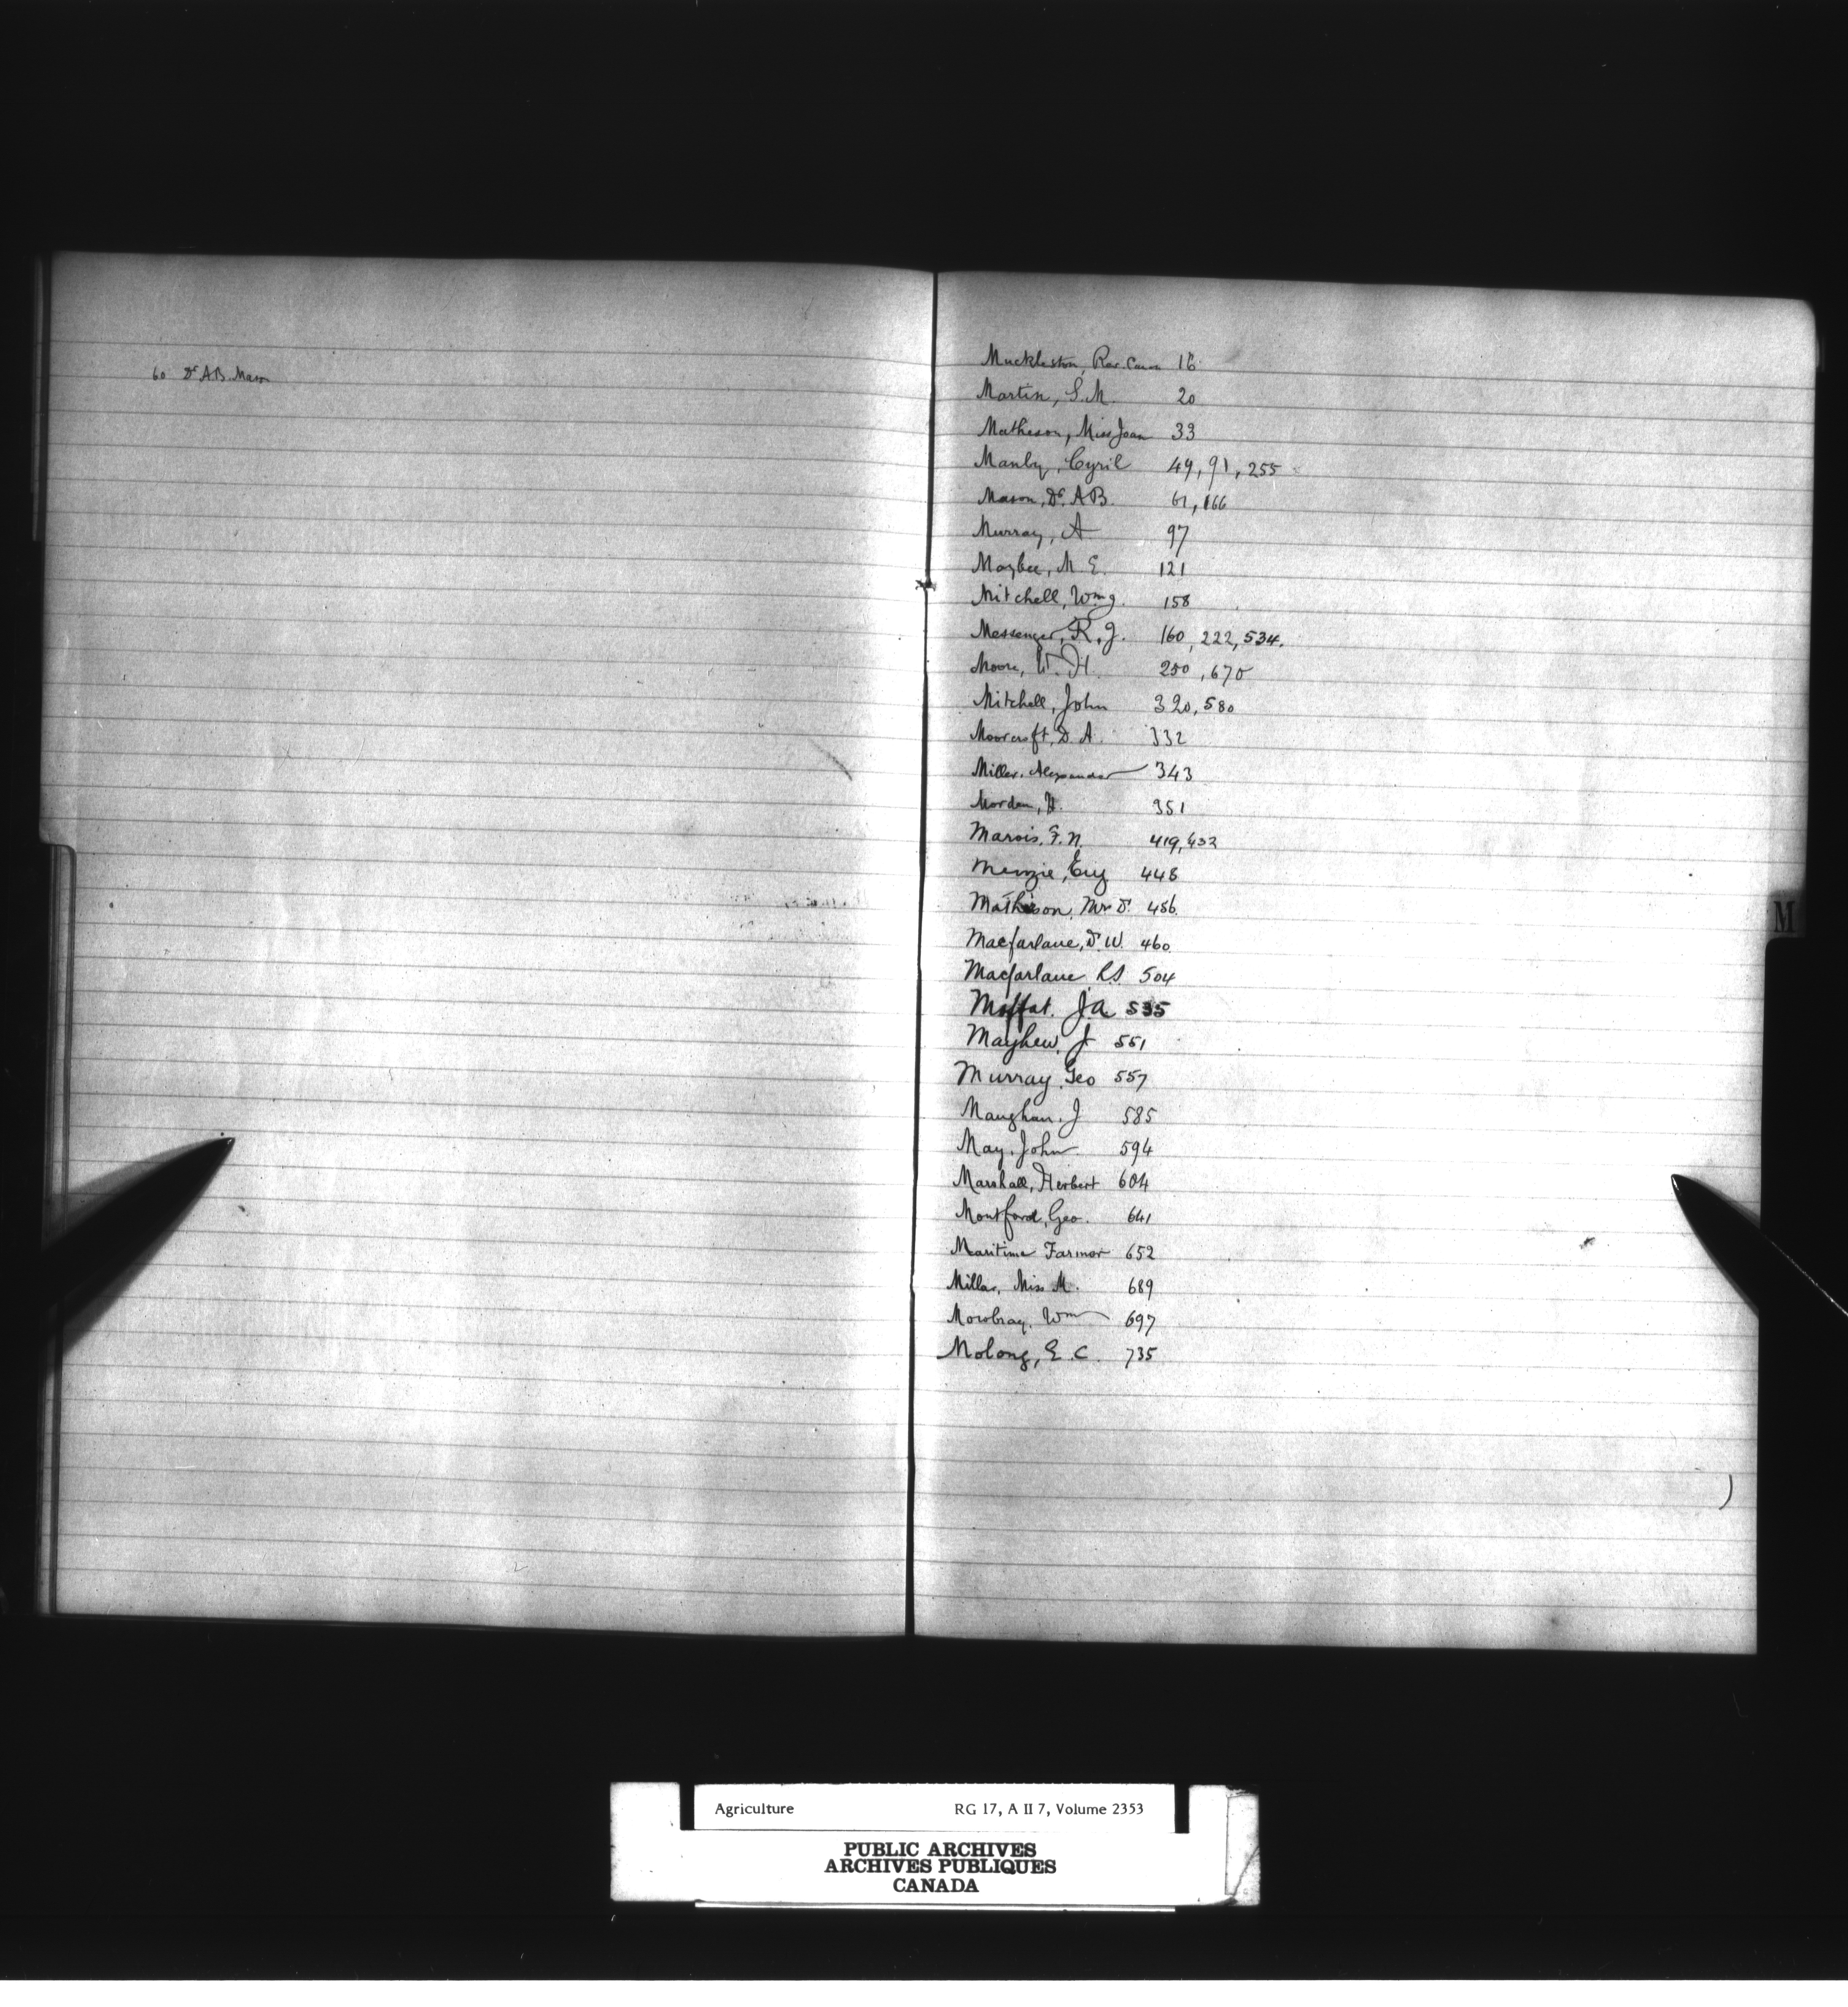 60 Dr A.B. Mason
Muckleston, Rev. Canon 16
Martin, S.M. 20
Matheson, Miss Joan 33
Manby, Cyril 49, 91, 255
Mason, Dr. A.B. 61, 166
Murray, A 97
Maybee, M.E. 121
Mitchell, Wm g. 158
Messenger, R.J. 160, 222, 534.
Moore, W.H. 250, 670
Mitchell, John 320, 580
Moorcroft, D.A. 332
Miller, Alexander 343
Morden, H. 351
Marois, F.N. 419, 432
Menzie, 448
Mathison, Mr D. 456
Macfarlane, D.W. 460
Macfarlane R.S. 504
Moffat. J.A. 535
Mayhew, J 551
Murray, Geo 557
Maughan, J 585
May, John 594
Marshall, Herbert 604
Montford, Geo. 641
Maritime Farmer 652
Millar, Miss M. 689
Mowbray, Wm 697
Molong, E.C. 735
M
Agriculture RG 17, A II 7, Volume 2353
PUBLIC ARCHIVES
ARCHIVES PUBLIQUES
CANADA